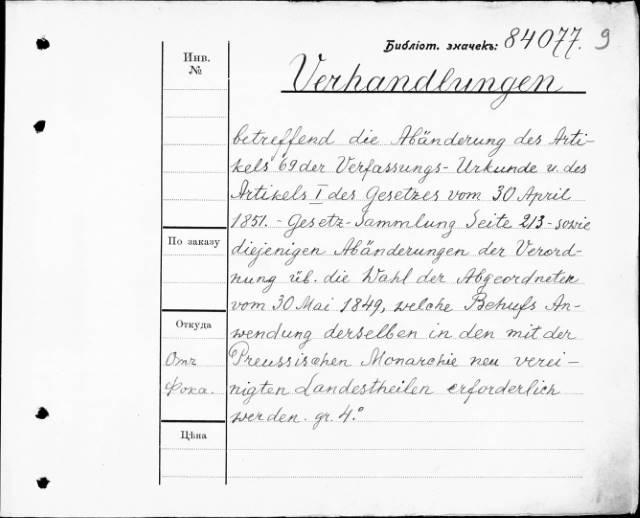 Библіот. значекъ: 84077. 9
Инв.
№
Verhandlungen
betreffend die Abänderung des Arti-
kels 69 der Verfassungs-Urkunde u. des
Artikels I des Gesetzes vom 30 April
1851. - Gesetz-Sammlung Seite 213 - sowie
По заказу
diejenigen Abänderungen der Verord-
nung üb. die Wahl der Abgeordneten
vom 30 Mai 1849, welche Behufs An-
Откуда
wendung derselben in den mit der
Отъ
Preussischen Monarchie neu verei-
Фока.
nigten Landestheilen erforderlich
werden. gr. 4.°
Цѣна